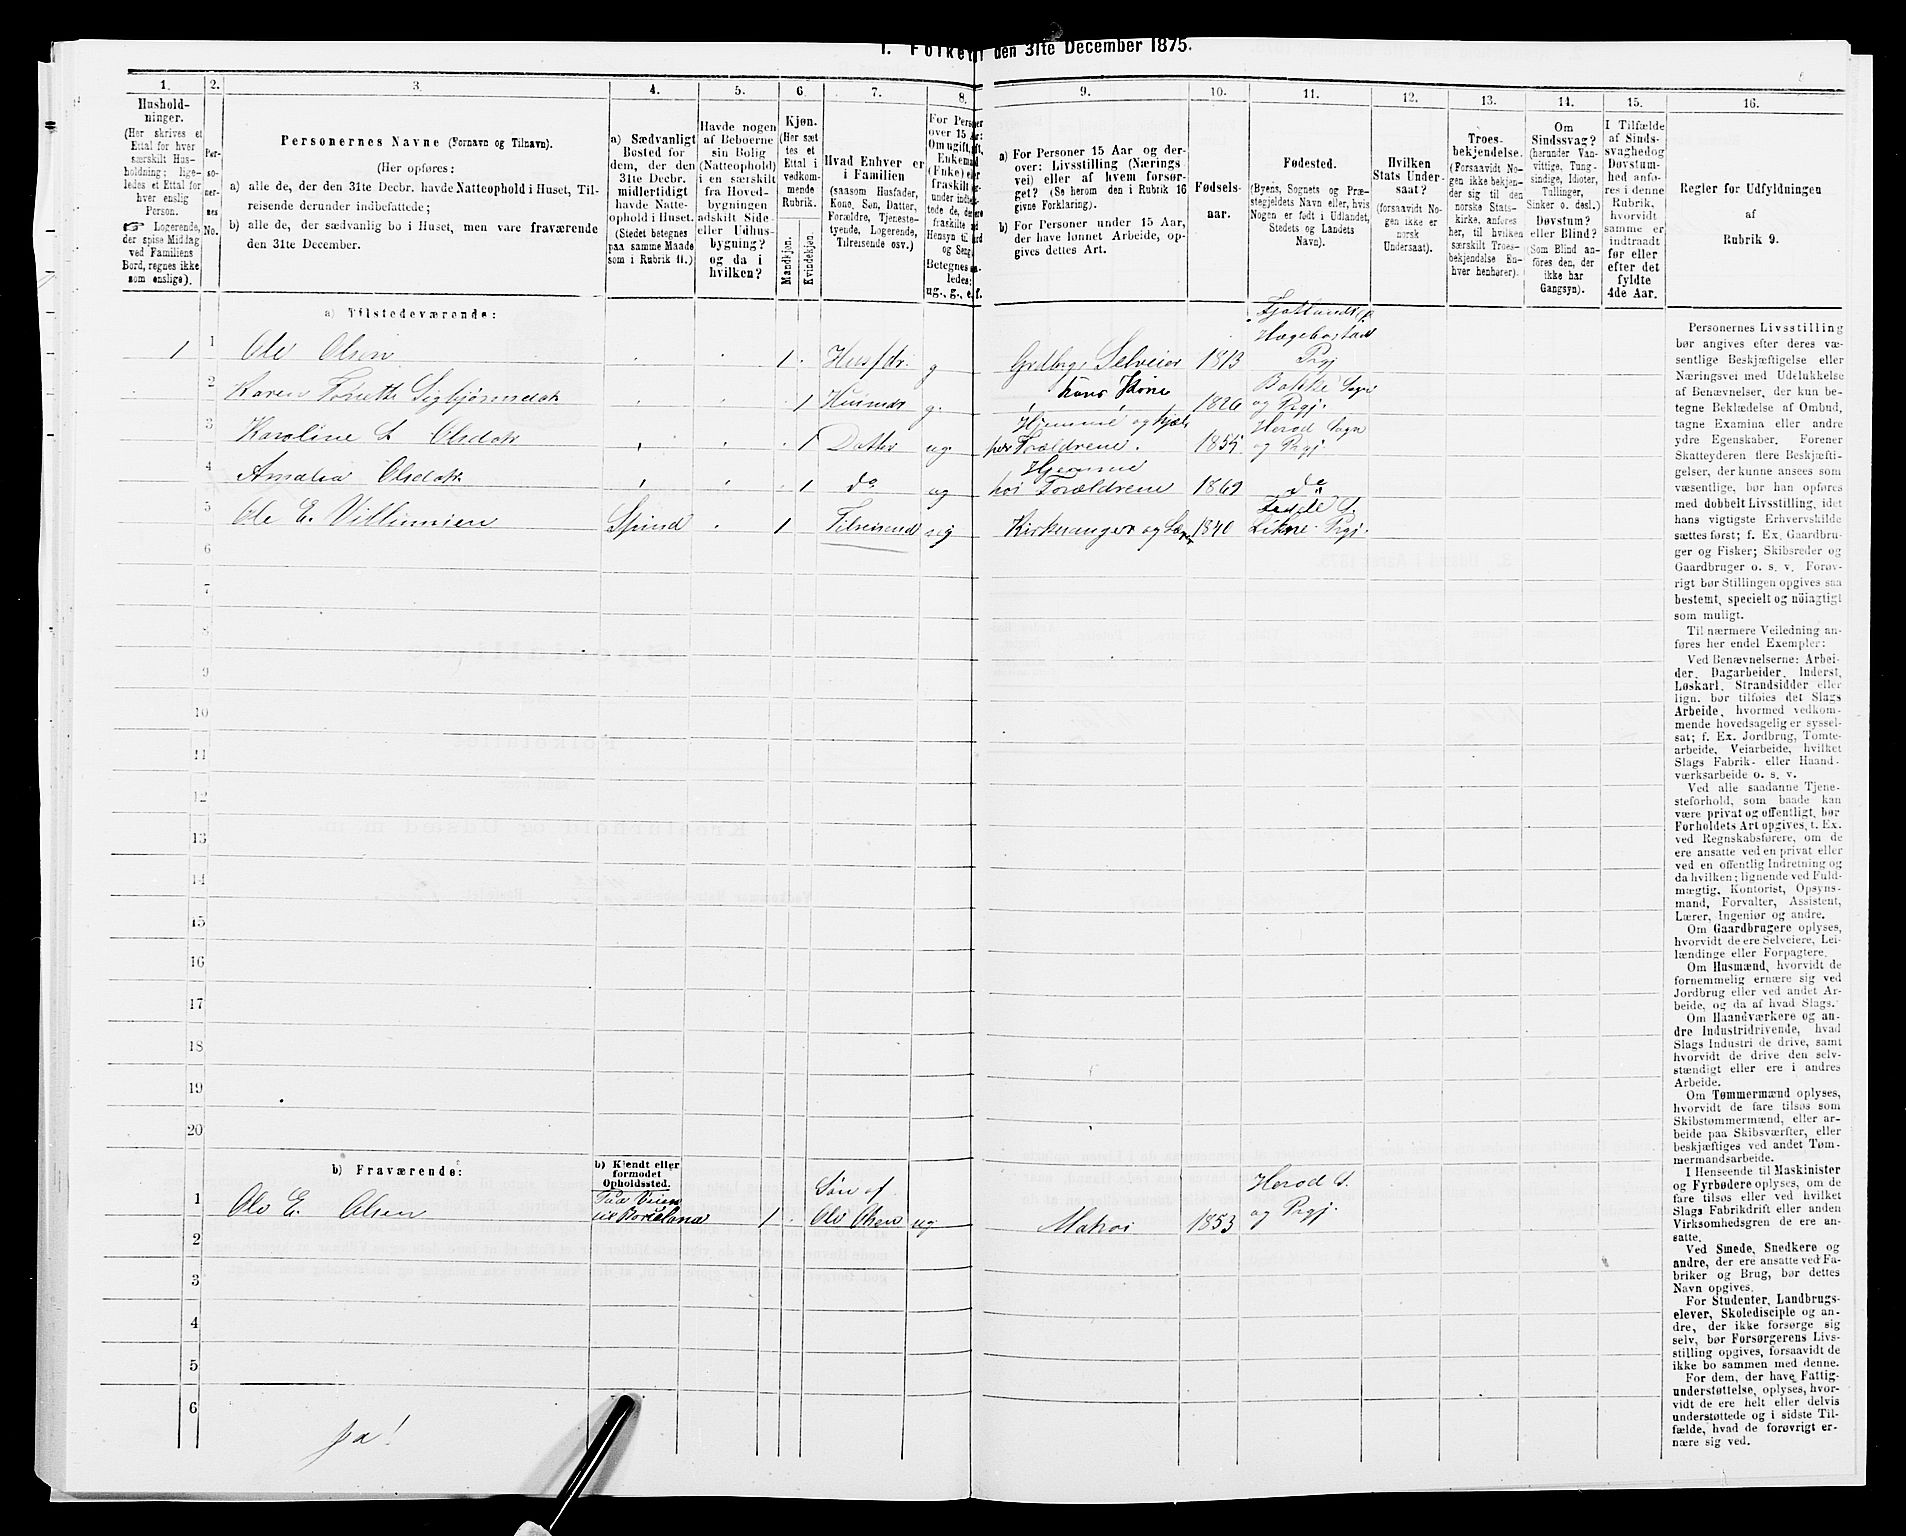 1. Folketal den 31te December 1875.
1. 2. 3. 4. 5. 6. 7. 8. 9. 10. 11. 12. 13. 14. 15. 16.
Hushold-
ninger.
(Her skrives et
Ettal for hver
særskilt Hus-
holdning; lige-
ledes et Ettal for
hver enslig
Person.
☞ Logerende,
der spise Middag
ved Familiens
Bord, regnes ikke
som enslige).
Per-
so-
ner-
nes
No.
Personernes Navne (Fornavn og Tilnavn).
(Her opføres:
a) alle de, der den 31te Decbr. havde Natteophold i Huset, Til-
reisende derunder indbefattede;
b) alle de, der sædvanlig bo i Huset, men vare fraværende
den 31te December.
a) Sædvanligt
Bosted for
dem, der den
31te Decbr.
midlertidigt
havde Natte-
ophold i Huset.
(Stedet betegnes
paa samme Maade
som i Rubrik 11.)
Havde nogen
af Beboerne
sin Bolig
(Natteophold)
i en særskilt
fra Hoved-
bygningen
adskilt Side-
eller Udhus-
bygning?
og da i
hvilken?
Kjøn.
(Her sæt-
tes et
Ettal i
vedkom-
mende
Rubrik.
Mandkjøn.
Kvindekjøn.
Hvad Enhver er
i Familien
(saasom Husfader,
Kone, Søn, Datter,
Forældre, Tjeneste-
tyende, Logerende,
Tilreisende osv.)
For Personer
over 15 Aar:
Om ugift, gift,
Enkemand
(Enke) eller
fraskilt
Betegnes
ledes:
ug., g., e, f.
a) For Personer 15 Aar og der-
over: Livsstilling (Nærings
vei) eller af hvem forsør-
get? (Se herom den i Rubrik 16
givne Forklaring).
b) For Personer under 15 Aar,
der have lønnet Arbeide, op-
gives dettes Art.
Fødsels-
aar.
Fødested.
(Byens, Sognets og Præ-
stegjeldets Navn eller, hvis
Nogen er født i Udlandet,
Stedets og Landets
Navn).
Hvilken
Stats Under-
saat?
(forsaavidt No-
gen ikke er
norsk
Undersaat).
Troes-
bekjendelse.
(Forsaavidt No-
gen ikke bekjen-
der sig til den
norske Stats-
kirke, anføres
her, til hvilken
særskilt Troes-
bekjendelse En-
hver henhører).
Om
Sindssvag?
(herunder Van-
vittige, Tung-
sindige, Idioter,
Tullinger,
Sinker o. desl.)
Døvstum?
eller Blind?
(Som Blind an-
føres den, der
ikke har
Gangsyn).
I Tilfælde
af Sinds-
svaghed og
Døvstum-
hed anfø-
res i denne
Rubrik,
hvorvidt
samme er
indtraadt
før eller
efter det
fyldte
4de Aar.
Regler for Udfyldningen
af
Rubrik 9.
a) Tilstedeværende:
1 1 Ole Olsen 1 Husfdr. g Grdbrg. Selveier 1813 Fjotlands Hægebostad Prgj
2 Karen Tonette Sigbjørnsdat 1 Husmdr g. Hans Kone 1826 Bakke Sogn og Prgj.
3 Karoline S. Olsdat 1 Datter ug. Hjemme og hjæl- per Forældrene. 1855 Herod Sogn og Prgj
4 Amalia Olsdat 1 do ug Hjemme hos Forældrene 1869 do
5 Ole E. Villumsen Spind 1 Tilreisend ug Kirkesanger og Lærer 1840 Fede S. Likne Prgj.
6
7
8
9
10
11
12
13
14
15
16
17
18
19
20
b) Fraværende:
b) Kjendt eller
formodet
Opholdssted.
1 Ole E. Olsen Paa Veien 1 Søn af Ole Olsen ug Matros 1853 Herod S. og Prgj.
2
3
4
5
6
ja!
Personernes Livsstilling
bør angives efter deres væ-
sentlige Beskjæftigelse eller
Næringsvei med Udelukkelse
af Benævnelser, der kun be-
tegne Beklædelse af Ombud,
tagne Examina eller andre
ydre Egenskaber. Forener
Skatteyderen flere Beskjæfti-
gelser, der kunne ansees som
væsentlige, bør han opføres
med dobbelt Livsstilling, idet
hans vigtigste Erhvervskilde
sættes først; f. Ex. Gaardbru-
ger og Fisker; Skibsreder og
Gaardbruger o. s. v. Forøv-
rigt bør Stillingen opgives saa
bestemt, specielt og nöiagtigt
som muligt.
Til nærmere Veiledning an-
føres her endel Exempler:
Ved Benævnelserne: Arbei-
der, Dagarbeider, Inderst,
Løskarl, Strandsidder eller
lign. bør tilføies det Slags
Arbeide, hvormed vedkom-
mende hovedsagelig er syssel-
sat; f. Ex. Jordbrug, Tomte-
arbeide, Veiarbeide, hvilket
Slags Fabrik- eller Haand-
værksarbeide o. s. v.
Ved alle saadanne Tjene-
steforhold, som baade kan
være privat og offentligt, bør
Forholdets Art opgives, t. Ex.
ved Regnskabsførere, om de
ere ansatte ved en privat eller
ved en offentlig Indretning og
da hvilken; lignende ved Fuld-
mægtig, Kontorist, Opsyns-
mand, Forvalter, Assistent,
Lærer, Ingeniør og andre.
Om Gaardbrugere oplyses,
hvorvidt de ere Selveiere, Lei-
lændinge eller Forpagtere.
Om Husmænd, hvorvidt de
fornemmelig ernære sig ved
Jordbrug eller ved andet Ar-
beide, og da af hvad Slags.
Om Haandværkere og an-
dre Industridrivende, hvad
Slags Industri de drive, samt
hvorvidt de drive den selv-
stændigt eller ere i andres
Arbeide.
Om Tømmermænd oplyses,
hvorvidt de fare tilsøs som
Skibstømmermænd, eller ar-
beide paa Skibsværfter, eller
beskjæftiges ved andet Tøm-
mermandsarbeide.
I Henseende til Maskinister
og Fyrbødere oplyses, om de
fare tilsøs eller ved hvilket
Slags Fabrikdrift eller anden
Virksomhedsgren de ere an-
satte.
Ved Smede, Snedkere og
andre, der ere ansatte ved Fa-
briker og Brug, bør dettes
Navn opgives.
For Studenter, Landbrugs-
elever, Skoledisciple og an-
dre, der ikke forsørge sig
selv, bør Forsørgerens Livs-
stilling opgives, forsaavidt de
ikke bo sammen med denne.
For dem, der have Fattig-
understøttelse, oplyses, hvor-
vidt de ere helt eller delvis
understøttede og i sidste Til-
fælde, hvad de forøvrigt er-
nære sig ved.